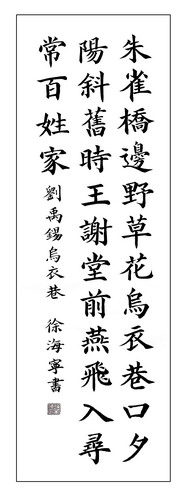 朱雀橋邊野草花烏衣巷口夕
陽斜舊時王謝堂前燕飛入尋
常百姓家
劉禹錫烏衣巷 徐海寧書